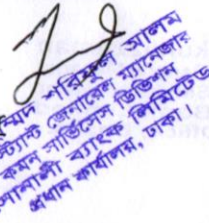 শরিফুল আলম
জেনারেল ম্যানেজার
কমন সার্ভিসেস ডিভিশন
সোনালী ব্যাংক লিমিটেড
প্রধান কার্যালয়, ঢাকা।